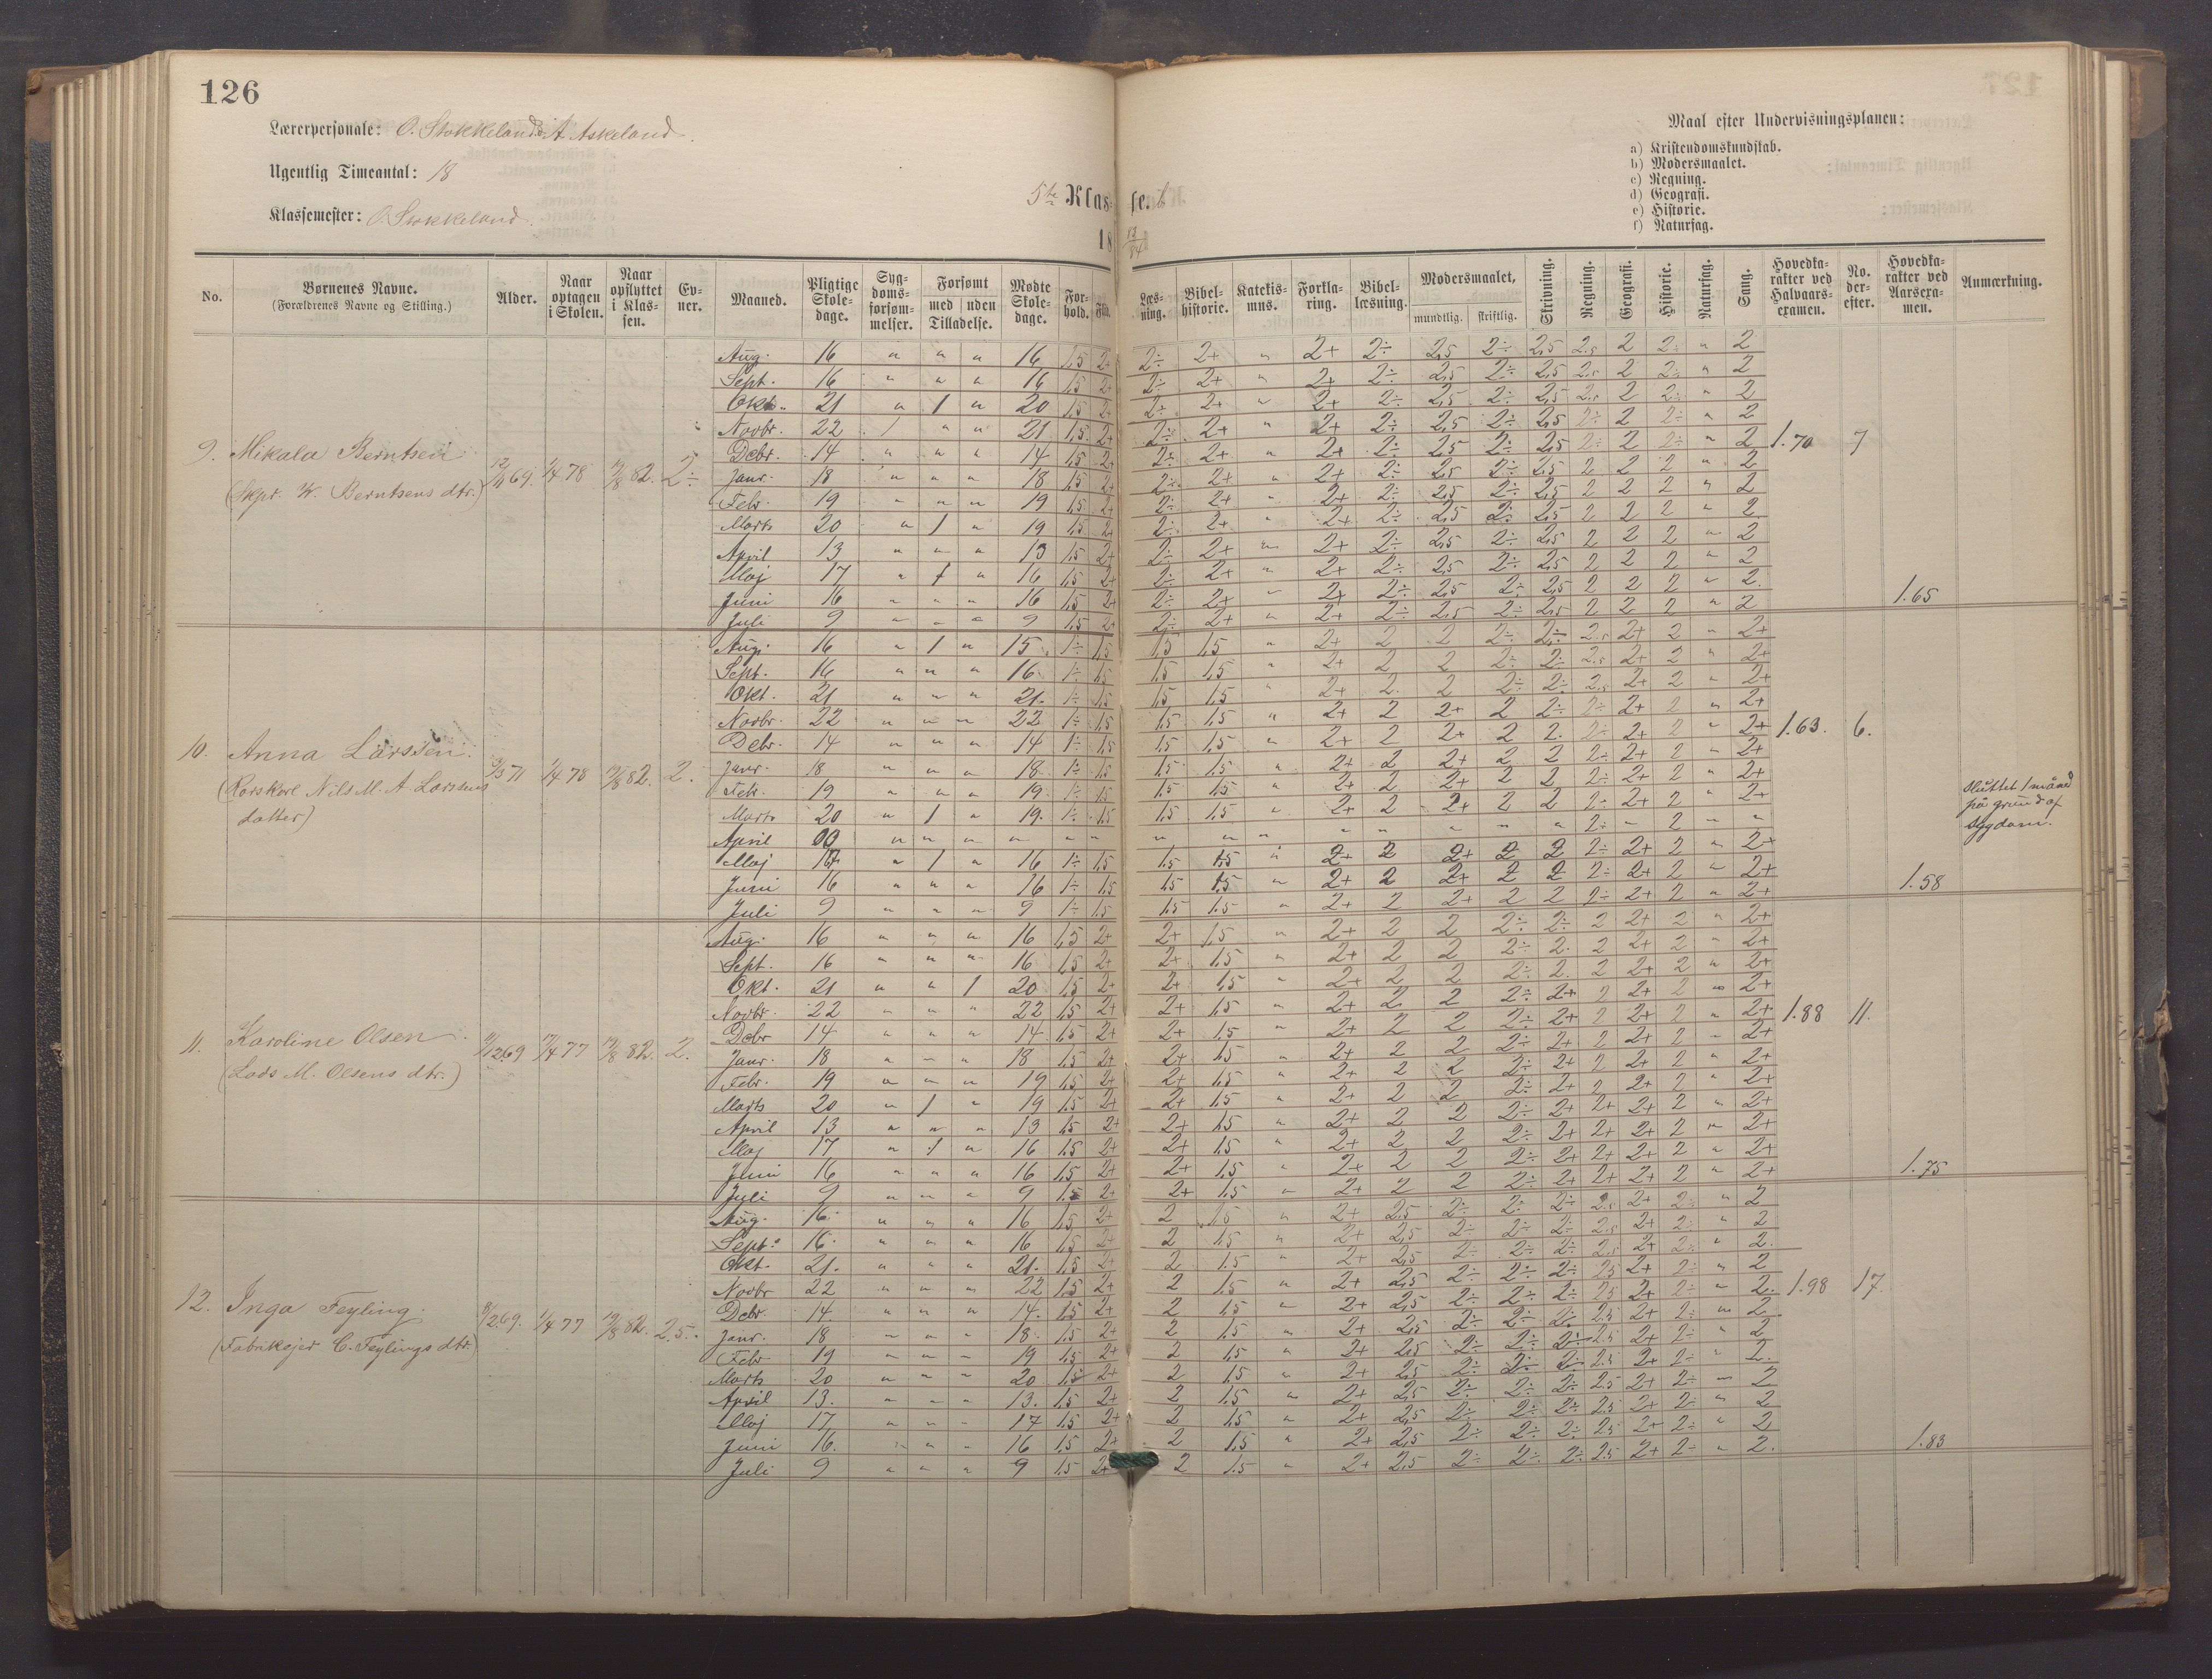 126
Lærerpersonale: O. Stokkeland & A Askeland.
Maal efter Undervisningsplanen:
a) Kristendomskundskab.
b) Modersmaalet.
c) Regning.
d) Geografi.
e) Historie.
f) Naturfag.
Ugentlig Timeantal: 18
5te Klasse.
Klassemester: O. Stokkeland.
18 83/84
No. Børnenes Navne. (Forældrenes Navne og Stilling.) Alder. Naar optagen i Skolen. Naar opflyttet i Klassen. Evner. Maaned. Pligtige Skoledage. Sygdomsforsømmelser. Forsømt med uden Tilladelse. Mødte Skoledage. Forhold. Flid. Læsning. Bibelhistorie. Katekismus. Forklaring. Bibellæsning. Modersmaalet, mundtlig. skriftlig. Skrivning. Regning. Geografi. Historie. Naturfag. Sang. Hovedkarakter ved Halvaarsexamen. No. derefter. Hovedkarakter ved Aarsexamen. Anmærkning.
9. Mikala Berntsen
(Skpr. W. Berntsens dtr.) 69. 1/4 78 82. 2÷
Aug. 16 " " " 16 1,5 2+ 2÷ 2+ " 2+ 2÷ 2,5 2÷ 2,5 2.5 2 2÷ " 2
Sept. 16 " " " 16 1,5 2+ 2÷ 2+ " 2+ 2÷ 2,5 2÷ 2,5 2.5 2 2÷ " 2
Okt. 21 " 1 " 20 1,5 2+ 2÷ 2+ " 2+ 2÷ 2,5 2÷ 2,5 2.5 2 2÷ " 2
Novbr. 22 1 " " 21 1,5 2+ 2÷ 2+ " 2+ 2÷ 2,5 2÷ 2,5 2÷ 2 2÷ " 2
Debr. 14 " " " 14 1,5 2+ 2÷ 2+ " 2+ 2÷ 2,5 2÷ 2,5 2÷ 2 2÷ " 2 1.70 7
Janr. 18 " " " 18 1,5 2+ 2÷ 2+ " 2+ 2÷ 2,5 2÷ 2,5 2 2 2 " 2
Febr. 19 " " " 19 1,5 2+ 2÷ 2+ " 2+ 2÷ 2,5 2÷ 2,5 2 2 2 " 2
Marts 20 " 1 " 19 1,5 2+ 2÷ 2+ " 2+ 2÷ 2,5 2÷ 2,5 2 2 2 " 2
April 13 " " " 13 1,5 2+ 2÷ 2+ " 2+ 2÷ 2,5 2÷ 2,5 2 2 2 " 2
Maj 17 " 1 " 16 1,5 2+ 2÷ 2+ " 2+ 2÷ 2,5 2÷ 2,5 2 2 2 " 2
Juni 16 " " " 16 1,5 2+ 2÷ 2+ " 2+ 2÷ 2,5 2÷ 2,5 2 2 2 " 2. 1.65
Juli 9 " " " 9 1,5 2+ 2÷ 2+ " 2+ 2÷ 2,5 2÷ 2,5 2 2 2 " 2
10. Anna Larssen.
(Nils M. A. Larssens datter) 71 1/4 78 82. 2.
Aug. 16 " 1 " 15 1÷ 1,5 1,5 1,5 " 2+ 2 2 2÷ 2÷ 2.5 2+ 2 " 2+
Sept. 16 " " " 16 1÷ 1,5 1,5 1,5 " 2+ 2 2 2÷ 2÷ 2.5 2+ 2 " 2+
Okt. 21 " " " 21. 1÷ 1,5 1,5 1,5 " 2+ 2. 2 2÷ 2÷ 2.5 2+ 2 " 2+
Novbr. 22 " " " 22 1÷ 1,5 1,5 1,5 " 2+ 2 2+ 2 2÷ 2÷ 2+ 2 " 2+
Debr. 14 " " " 14 1÷ 1,5 1,5 1,5 " 2+ 2 2+ 2 2. 2÷ 2+ 2 " 2+ 1.63. 6.
Janr. 18 " " " 18 1÷ 1,5 1,5 1,5 " 2+ 2 2+ 2 2 2÷ 2+ 2 " 2+
Febr. 19 " " " 19 1÷ 1,5 1,5 1,5 " 2+ 2 2+ 2 2 2÷ 2+ 2 " 2+
Marts 20 " 1 " 19. 1÷ 1,5 1,5 1,5 " 2+ 2 2+ 2 2 2÷ 2+ 2 " 2+
April 00 " " " " " " " " " " " " " " 2÷ " 2 " "
Sluttet 1 måned
på grund af
sygdom.
Maj 17 " 1 " 16 1÷ 1,5 1,5 1,5 " 2+ 2 2+ 2 2 2÷ 2+ 2 " 2+
Juni 16 " " " 16 1÷ 1,5 1,5 1,5 " 2+ 2 2+ 2 2 2÷ 2+ 2 " 2+ 1.58
Juli 9 " " " 9 1÷ 1,5 1,5 1,5 " 2+ 2 2+ 2 2 2÷ 2+ 2 " 2+
11. Karoline Olsen
(Lods M. Olsens dtr.) 69 77 82. 2.
Aug. 16 " " " 16 1,5 2+ 2+ 1,5 " 2+ 2 2 2÷ 2÷ 2 2+ 2 " 2+
Sept. 16 " " " 16 1,5 2+ 2+ 1,5 " 2+ 2 2 2÷ 2. 2 2+ 2 " 2+
Okt. 21 " " 1 20 1,5 2+ 2+ 1,5 " 2+ 2 2 2÷ 2. 2 2+ 2 " 2+
Novbr. 22 " " " 22 1,5 2+ 2+ 1,5 " 2+ 2 2 2÷ 2+ 2 2+ 2 " 2+
Debr 14 " " " 14 1,5 2+ 2+ 1,5 " 2+ 2 2 2÷ 2+ 2 2+ 2 " 2+ 1.88 11.
Janr. 18 " " " 18 1,5 2+ 2+ 1,5 " 2+ 2 2 2÷ 2+ 2 2+ 2 " 2+
Febr. 19 " " " 19 1,5 2+ 2+ 1,5 " 2+ 2 2 2÷ 2+ 2 2+ 2 " 2+
Marts 20 " 1 " 19 1,5 2+ 2+ 1,5 " 2+ 2 2 2÷ 2+ 2 2+ 2 " 2+
April 13 " " " 13 1,5 2+ 2+ 1,5 " 2+ 2 2 2÷ 2+ 2+ 2+ 2 " 2+
Maj 17 " 1 " 16 1,5 2+ 2+ 1,5 " 2+ 2 2 2÷ 2+ 2+ 2+ 2 " 2+
Juni 16 " " " 16 1,5 2+ 2+ 1,5 " 2+ 2 2 2÷ 2+ 2+ 2+ 2 " 2+ 1.75
Juli 9 " " " 9 1,5 2+ 2+ 1,5 " 2+ 2 2 2÷ 2+ 2+ 2+ 2 " 2+
12. Inga Feyling.
(Fabrikejer C. Feylings dtr.) 69. 1/4 77 82. 2.5.
Aug. 16 " " " 16 1,5 2+ 2 1,5 " 2+ 2,5 2÷ 2÷ 2÷ 2.5 2+ 2÷ " 2
Sept. 16 " " " 16 1,5 2+ 2 1,5 " 2+ 2,5 2÷ 2÷ 2÷ 2.5 2+ 2÷ " 2
Okt. 21. " " " 21. 1,5 2+ 2 1,5 " 2+ 2,5 2÷ 2÷ 2÷ 2.5 2+ 2÷ " 2.
Novbr 22 " " " 22 1,5 2+ 2 1,5 " 2+ 2,5 2÷ 2÷ 2÷ 2.5 2+ 2÷ " 2
Debr. 14. " " " 14. 1,5 2+ 2 1,5 " 2+ 2,5 2÷ 2÷ 2÷ 2.5 2+ 2÷ " 2. 1.98 17.
Janr. 18 " " " 18 1,5 2+ 2 1,5 " 2+ 2,5 2÷ 2÷ 2÷ 2.5 2+ 2÷ " 2
Febr 19 " " " 19 1,5 2+ 2 1,5 " 2+ 2,5 2÷ 2÷ 2÷ 2.5 2+ 2÷ " 2
Marts 20 " " " 20 1,5 2+ 2 1,5 " 2+ 2,5 2÷ 2÷ 2÷ 2.5 2+ 2÷ " 2.
April 13. " " " 13. 1,5 2+ 2 1,5 " 2+ 2,5 2÷ 2÷ 2÷ 2.5 2+ 2÷ " 2
Maj 17 " " " 17 1,5 2+ 2 1,5 " 2+ 2,5 2÷ 2÷ 2÷ 2.5 2+ 2÷ " 2
Juni 16. " " " 16 1,5 2+ 2 1,5 " 2+ 2,5 2÷ 2÷ 2÷ 2.5 2+ 2÷ " 2 1.83
Juli 9 " " " 9 1,5 2+ 2 1,5 " 2+ 2,5 2÷ 2÷ 2÷ 2.5 2+ 2÷ " 2.